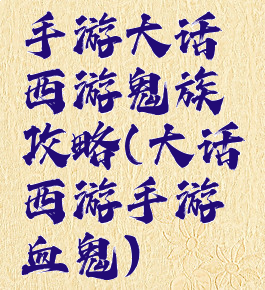 手游大话
西游鬼族
攻略(大话
西游手游
血鬼)